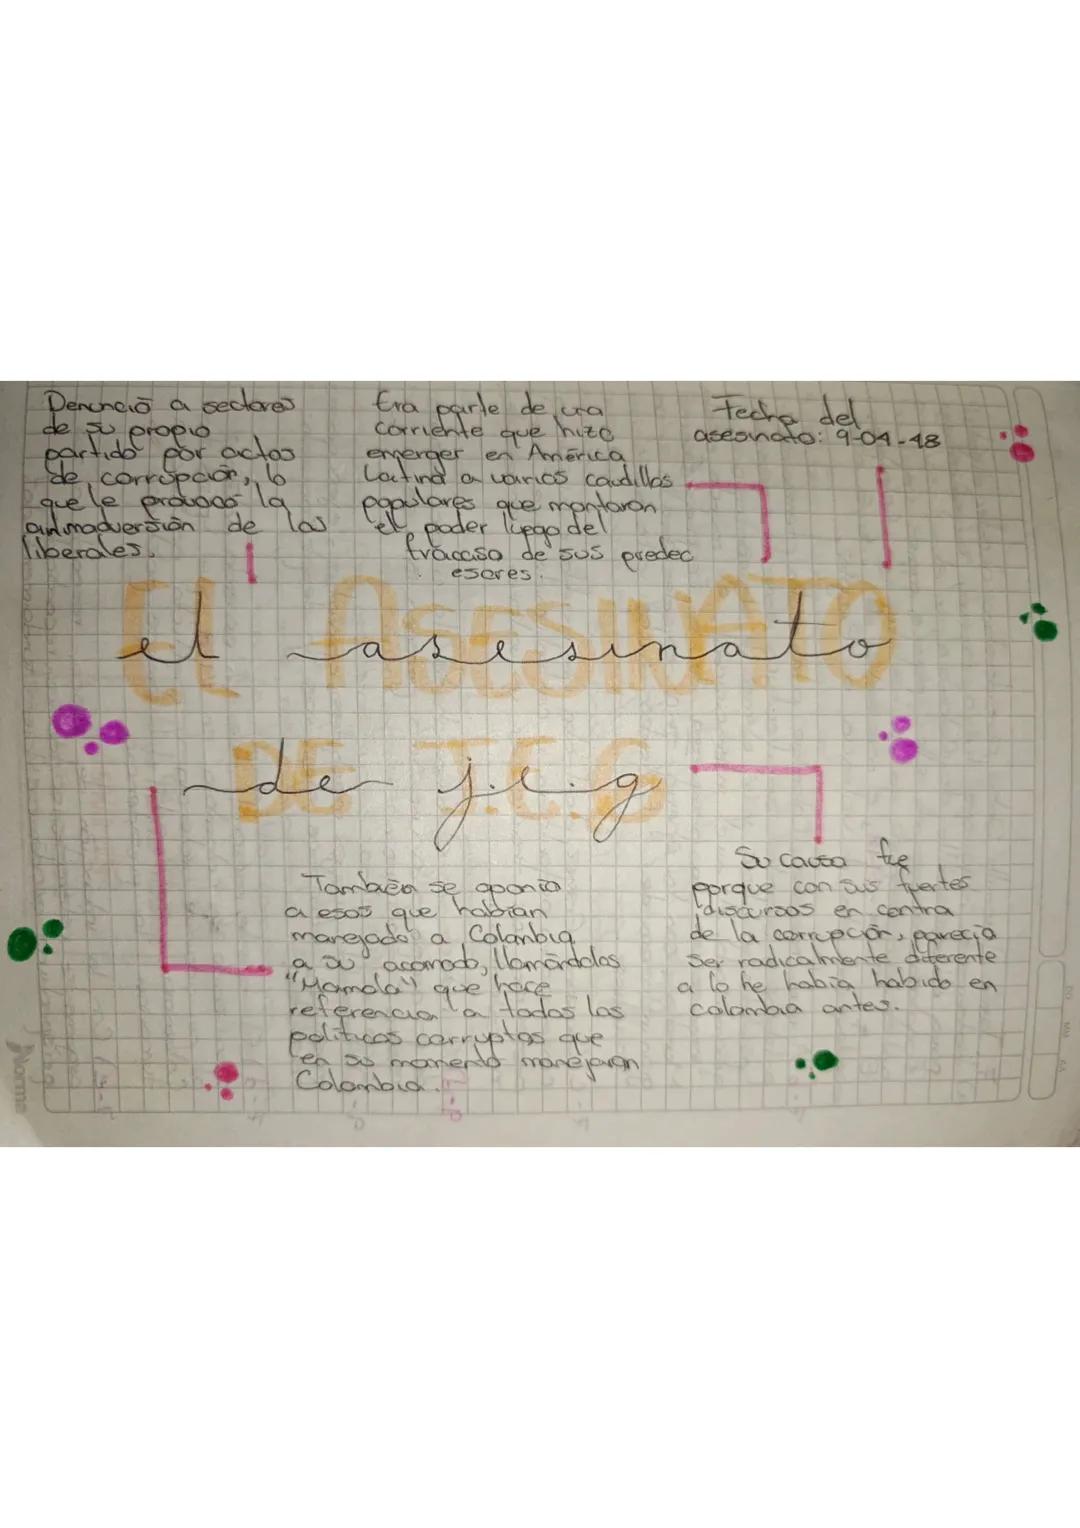 Denunció a sectores
de su propio
partido por actos
de corrupción, lo
que le provocó la
animadversión de los
liberales.
Era parte de una
corriente que hizo
emerger en América
Latina a varios caudillos
populares que montaron
el poder luego del
fracaso de sus predec
esores.
Fecha del
asesinato: 9-04-48
EL ASESINATO
el asesinato
DE J.E.G
de j.e.g
También se oponía
a esos que habían
manejado a Colombia
a su acomodo, llamándolos
"Mamola" que hace
referencia a todos los
políticos corruptos que
en su momento manejaron
Colombia.
Su causa fue
porque con sus fuertes
discursos en contra
de la corrupción, parecía
ser radicalmente diferente
a lo he había habido en
colombia antes.
Norma